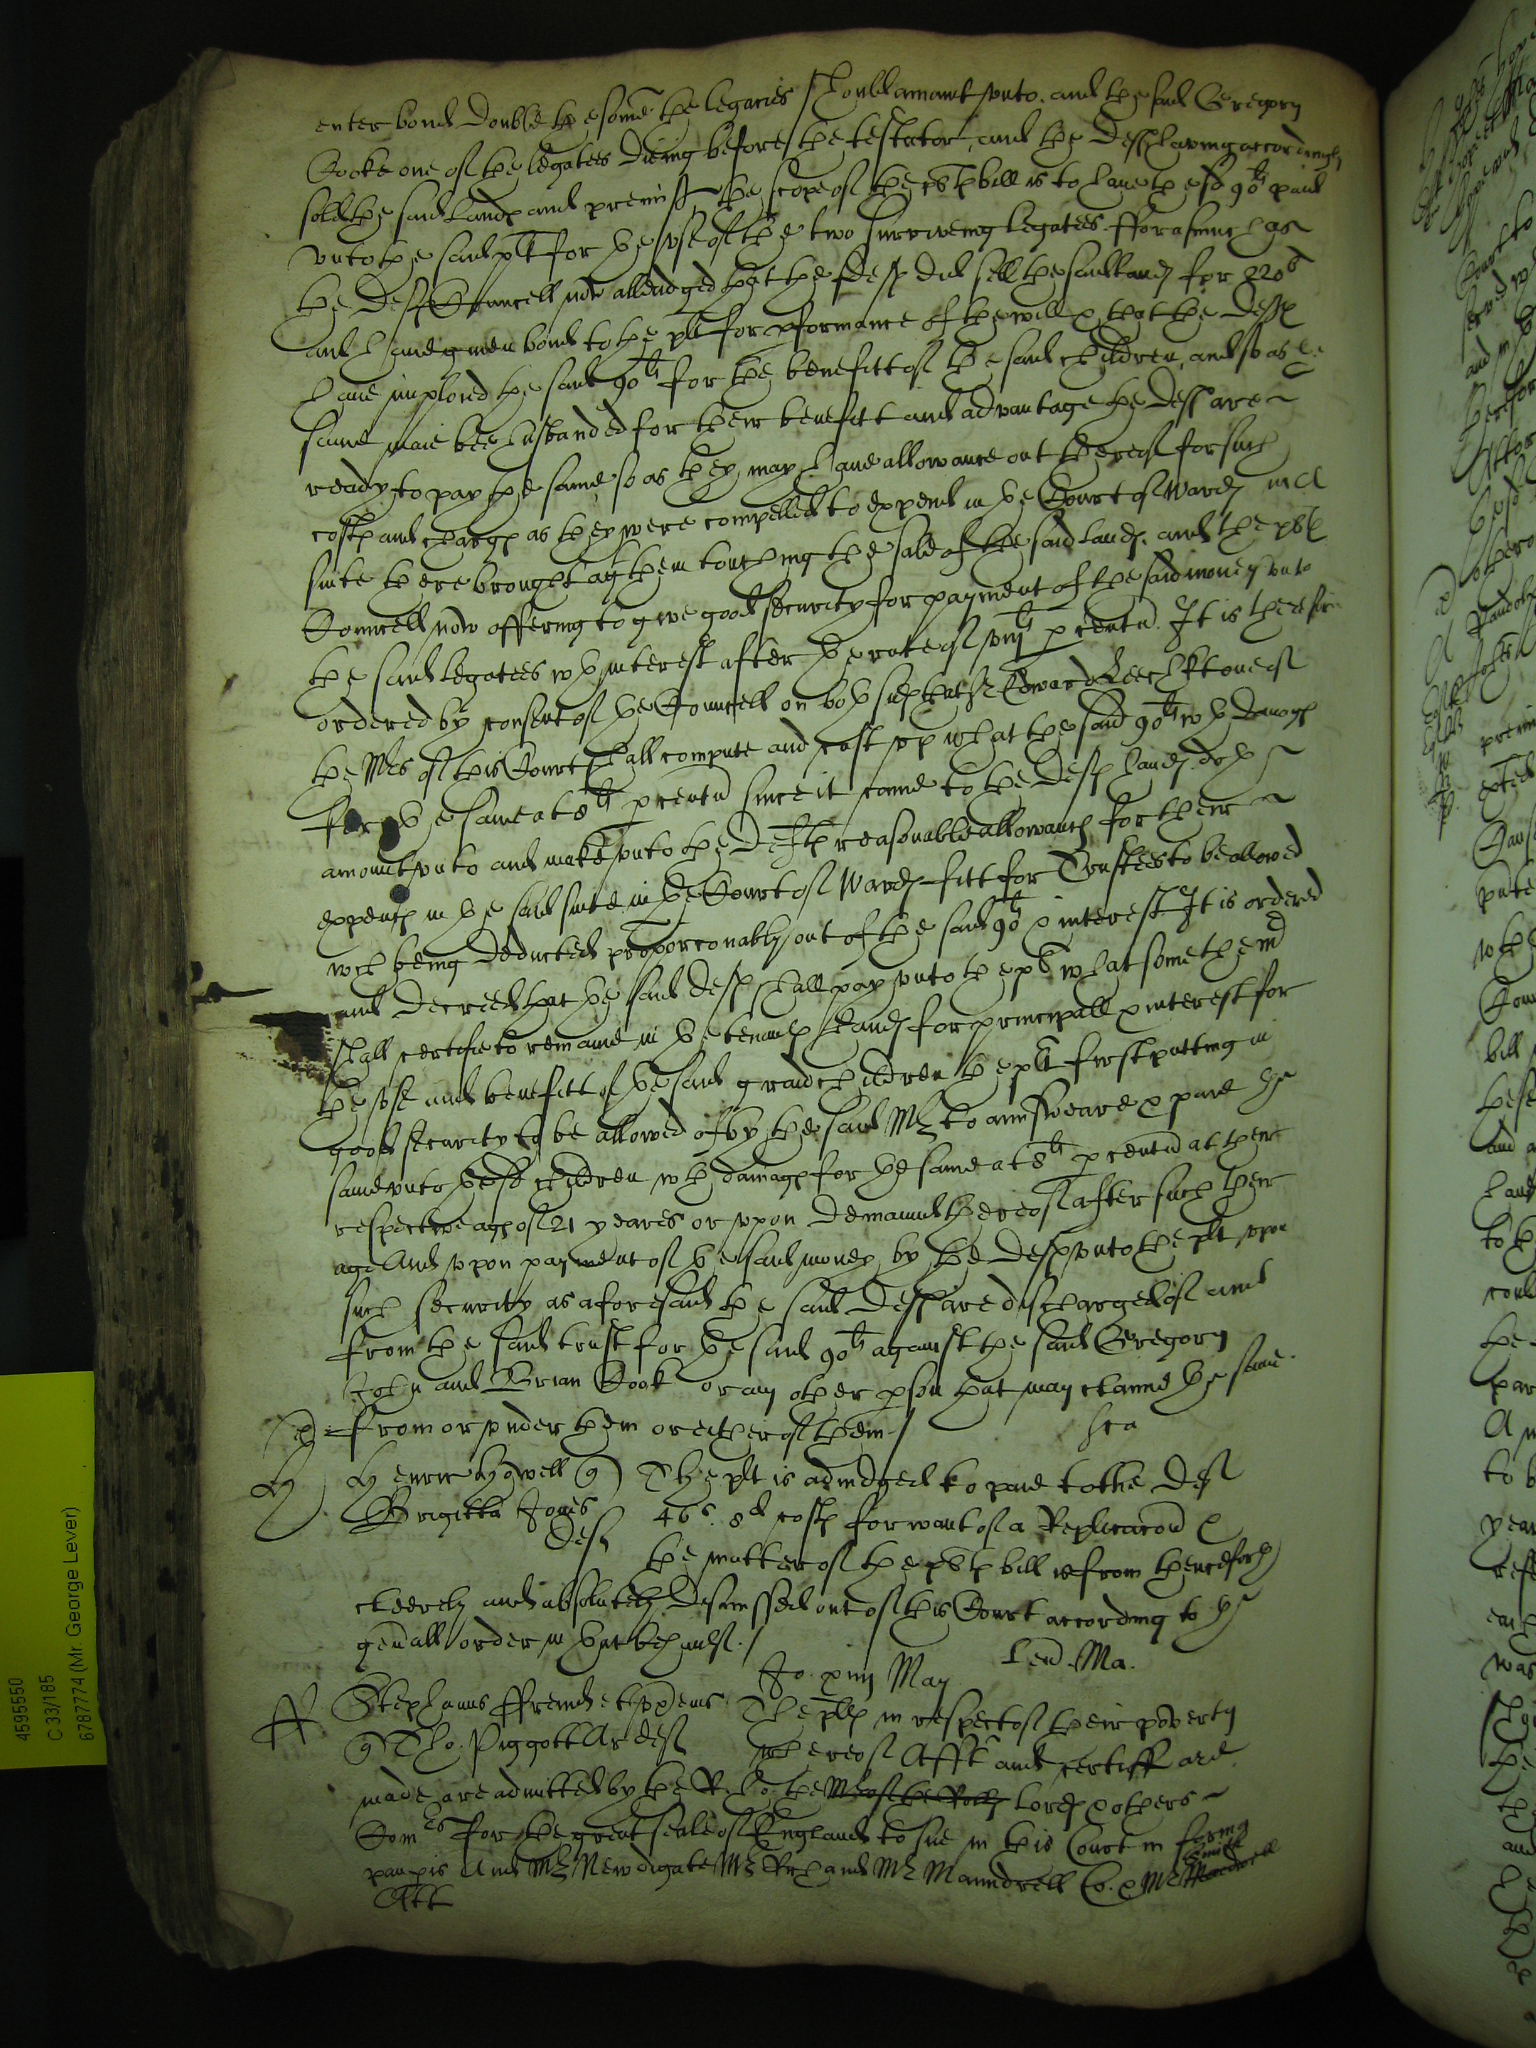 enter bond double the some the legacies should amount vnto. and the said Gregory
Cooke one of the legatees dieing before the testator, and the defts haveing accordingly
sold the said lands and premiss the scope of the pnte bill is to have the sd 90li paid
vnto the said plt for the vse of the two surviveing legatees. fforasmuch as
the defts Councell now alleadged that the sd defts did sell the said lands for 220li
and have given bond to the plt for pformance of the will & that the defts
have imployed the said 90li for the benefitt of the said children, and so as the
same maie bee husbanded for their benefitt and advantage the defts are
ready to pay the same so as they may have allowance out thereof for such
costs and charges as they were compelled to expend in the Court of Wards in a
suite there brought agt them touching the sale of the said lands. and the plts
Councell now offering to give good security for payment of the said money vnto
the said legatees wth interest after the rate of viijli p centu. It is therefore
ordered by consent of the Councell on both sides that Sr Edward Leech kt one of
the Mrs of this Court shall compute and cast vp what the said 90li wth damages
for the same at 8li p centu since it came to the defts hands. doth
amount vnto and make vnto the defts reasonable allowance for their
expences in the said suite in the Court of Wards fitt for Trustees to be allowed
wch being deducted proporconably out of the said 90li & interest It is ordered
and decreed that the said defts shall pay vnto the plt what some the mr
shall certifie to remaine in the defts hands for principall & interest for
the vse and benefitt of the said grandchildren the plt first putting in
good security to be allowed of by the said Mr to aunsweare & paie the
same vnto the sd children wth damages for the same at 8li p centu at their
respective ages of 21 yeares or vpon demaund thereof after such their
age And vpon payment of the said money by the defts vnto the plt vpon
such security as aforesaid the said defts are discharged of and
from the said trust for the said 90li against the said Gregory
John and Brian Cook or any other pson that may clame the same
from or vnder them or either of them /
Henric Howell q The plt is adiudged to paie to the def
Brigitta Jones 46s. 8d costs for want of a Replicacon &
def the matter of the pnte bill is from thenceforth
cleerely and absolutely dismissed out of this Court according to the
genall order in that behalfe. /
Jo. xiiij May Lend. Ma.
Stephanus ffrench et vx quer The plts in respect of their poverty
q Tho. Piggott Ar def whereof Afft and certiff are
made are admitted by the R. Ho. the Mr of the Rolls Lords & others
Comrs for the great seale of England to sue in this Court in forma
paupis And Mr Newdigate Mr Rich and Mr Maundrell Co. & Mr Smith
Att
4595550
C 33/185
6787774 (Mr. George Lever)